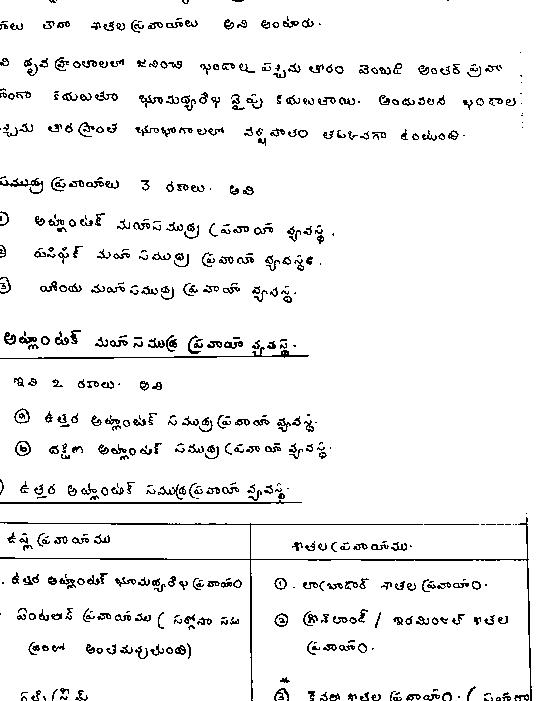 శీతల ప్రవాహాలు అని అంటారు.
ధృవ ప్రాంతాలలో జనించి ఖండాల పశ్చిమ తీరం వెంబడి
కదులుతూ భూమధ్యరేఖ వైపు కదులుతాయి. అందువలన ఖండాల
తీర ప్రాంత భూభాగాలలో వర్షపాతం తక్కువగా ఉంటుంది.
సముద్ర ప్రవాహాలు 3 రకాలు. అవి
① అట్లాంటిక్ మహాసముద్ర ప్రవాహ వ్యవస్థ.
② పసిఫిక్ మహాసముద్ర ప్రవాహ వ్యవస్థ.
③ హిందూ మహాసముద్ర ప్రవాహ వ్యవస్థ.
అట్లాంటిక్ మహాసముద్ర ప్రవాహ వ్యవస్థ.
ఇవి 2 రకాలు. అవి
ⓐ ఉత్తర అట్లాంటిక్ సముద్ర ప్రవాహ వ్యవస్థ.
ⓑ దక్షిణ అట్లాంటిక్ సముద్ర ప్రవాహ వ్యవస్థ.
) ఉత్తర అట్లాంటిక్ సముద్ర ప్రవాహ వ్యవస్థ.
ఉష్ణ ప్రవాహము
శీతల ప్రవాహము.
. ఉత్తర అట్లాంటిక్ భూమధ్యరేఖ ప్రవాహం
ఏంటిలిస్ ప్రవాహము (
అంతమవుతుంది)
గల్ఫ్ స్ట్రీమ్
①. లాబ్రడార్ శీతల ప్రవాహం.
② గ్రీన్‌లాండ్ / ఇర్మింజర్ శీతల
ప్రవాహం.
③ కెనరీ శీతల ప్రవాహం. (